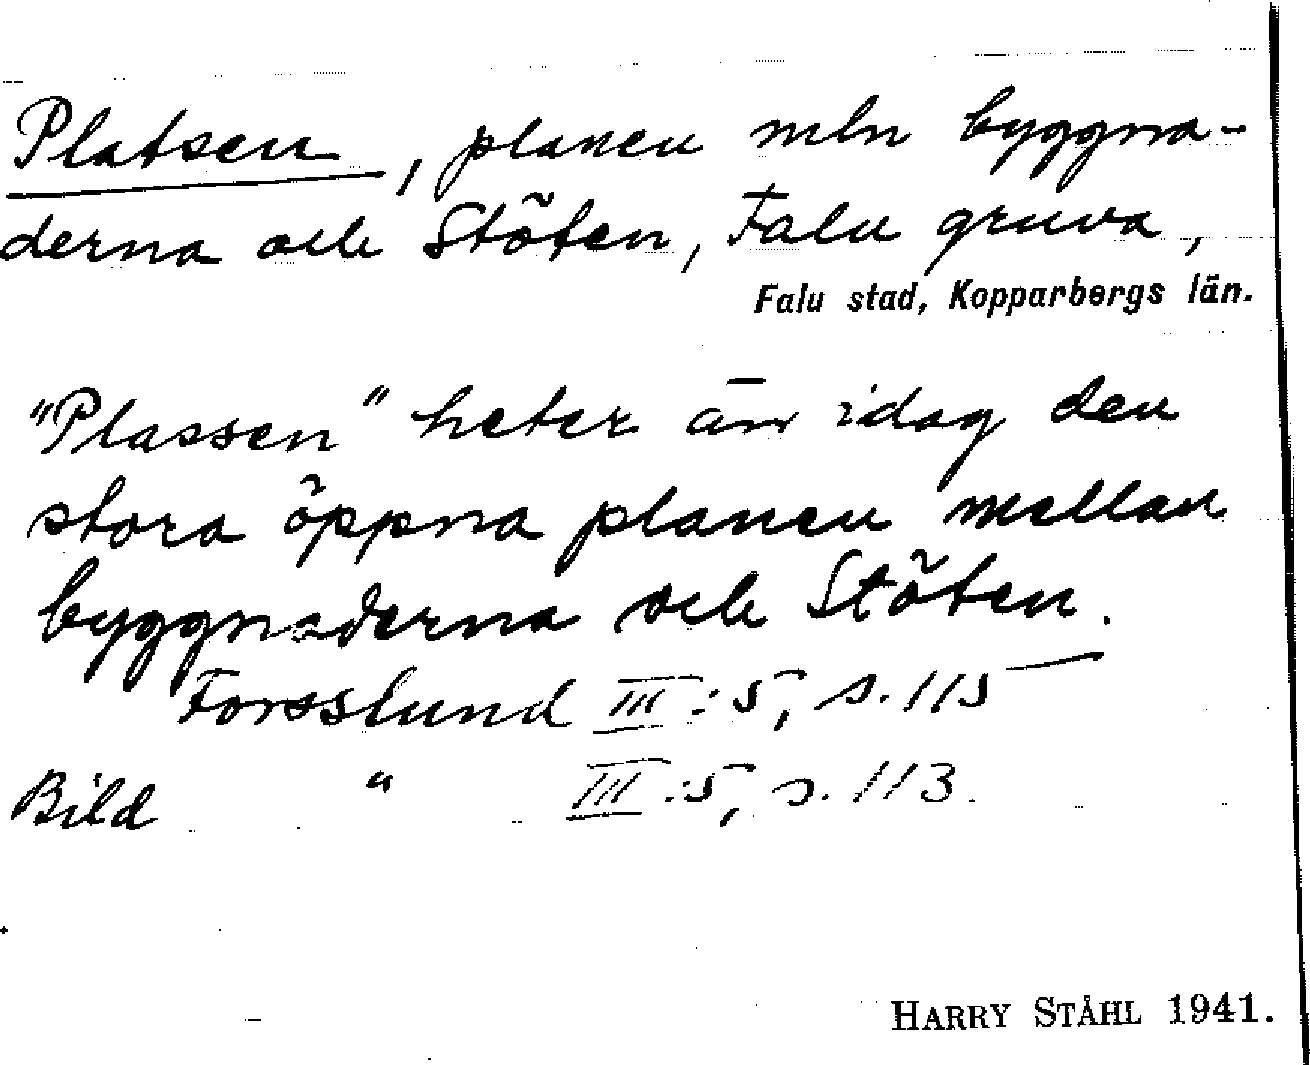 Platsen, planen mln byggna-
derna och Stöten, Falu gruva,
Falu stad, Kopparbergs län.
"Plassen" heter än idag den
stora öppna planen mellan
byggnaderna och Stöten.
Forsslund III:5, s. 115
Bild " III:5, s. 113.
HARRY STÅHL 1941.